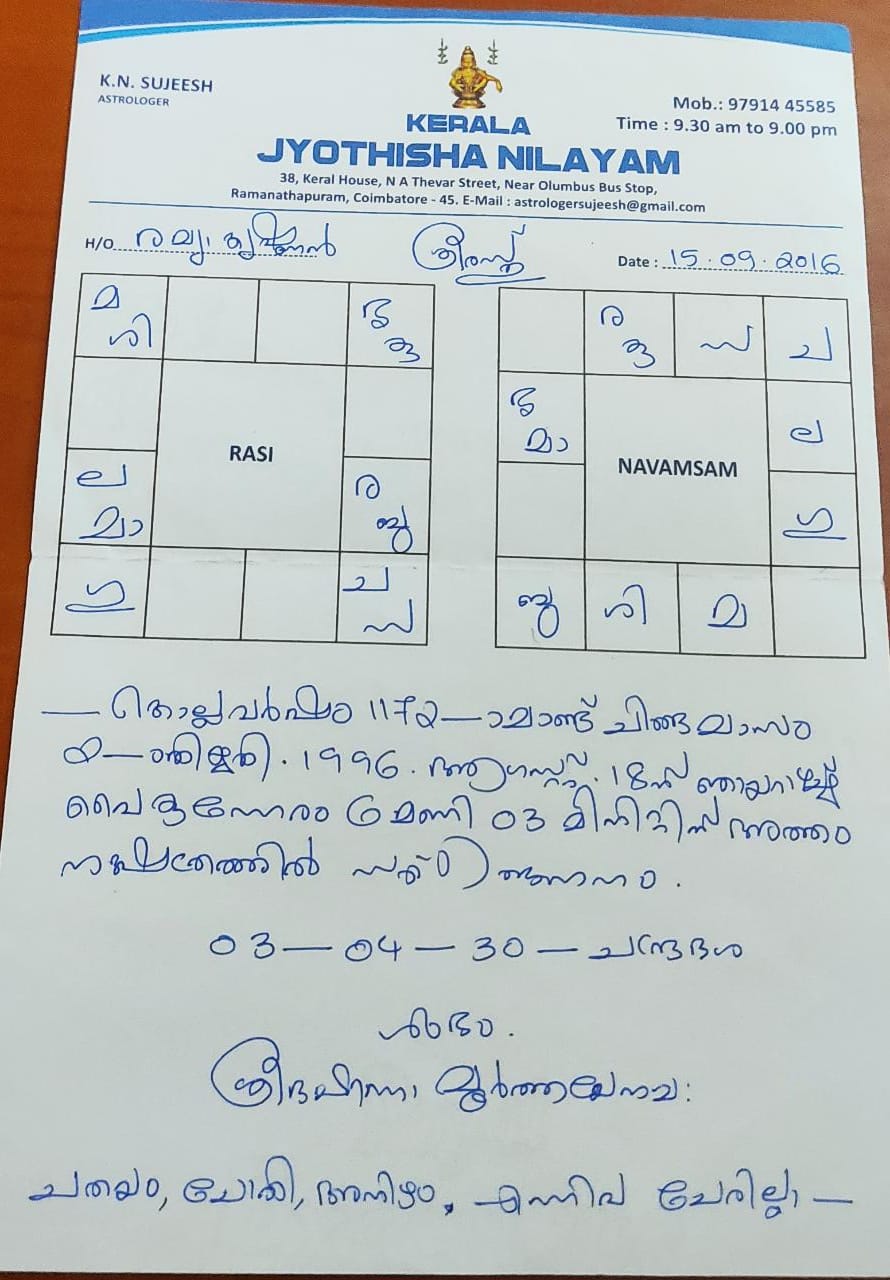 K.N. SUJEESH
ASTROLOGER
Mob.: 97914 45585
Time : 9.30 am to 9.00 pm
KERALA
JYOTHISHA NILAYAM
38, Keral House, N A Thevar Street, Near Olumbus Bus Stop,
Ramanathapuram, Coimbatore - 45. E-Mail : astrologersujeesh@gmail.com
H/O രമ്യാ കൃഷ്ണൻ
ശ്രീരസ്തു
Date : 15.09.2016
മ
ശി
ല
മാ
ഗു
RASI
ര
ബു
ച
സ
ര
സ
ച
മാ
ല
ഗു
NAVAMSAM
ബു
ശി
മ
— കൊല്ലവർഷം 1172-ാമാണ്ട് ചിങ്ങമാസം
1996. ആഗസ്റ്റ്. 18ന് ഞായറാഴ്ച്ച
വൈകുന്നേരം 6 മണി 03 മിനിറ്റിന് അത്തം
നക്ഷത്രത്തിൽ ജനനം.
03 — 04 — 30 — ചന്ദ്രദശ
ശുഭം.
ശ്രീദക്ഷിണാ മൂർത്തയേനമ:
ചതയം, ചോതി, അനിഴം, എന്നിവ ചേരില്ലാ —